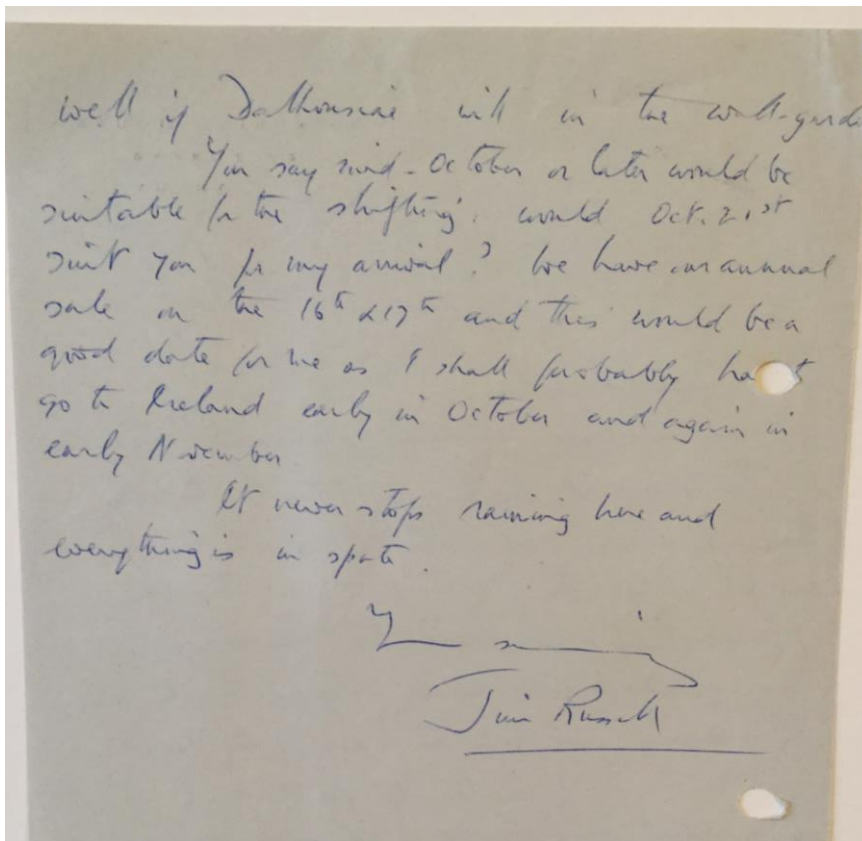 well if Dalhousiae will in the wall-garde
You say mid-October or later would be
suitable for the shifting. would Oct. 21st
suit you for my arrival? We have our annual
sale on the 16th & 17th and this would be a
good date for me as I shall probably ha t
go to Ireland early in October and again in
early November
It never stops raining here and
everything is in spate.
Yours sincerely
Jim Russell